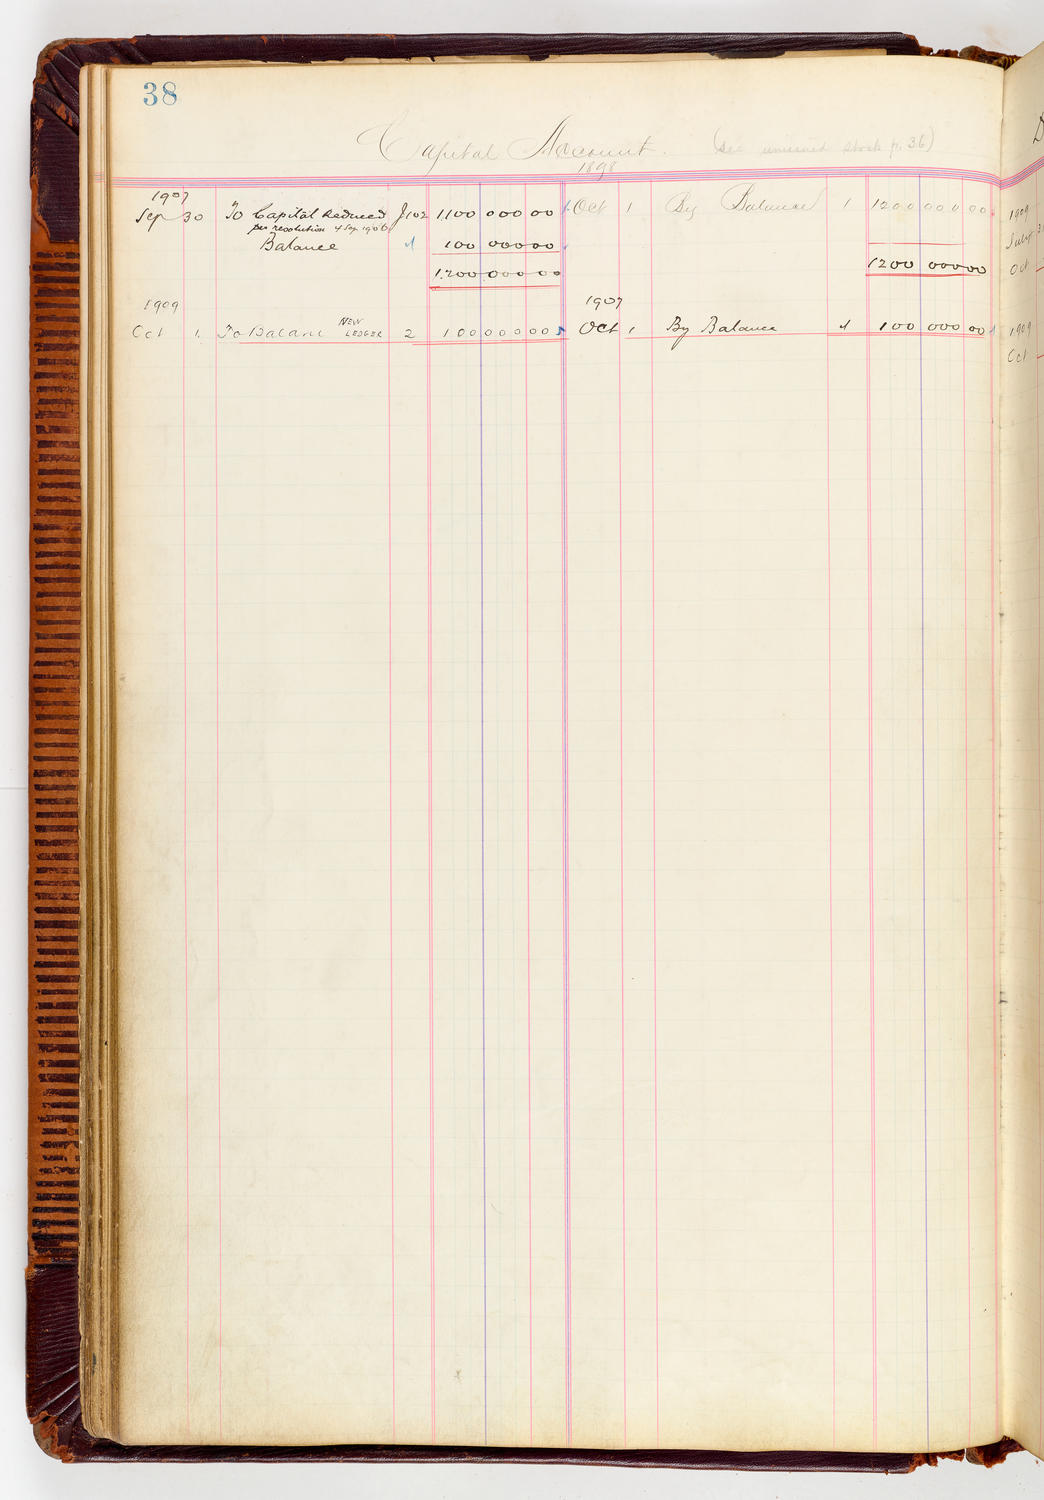 38
Capital Account. (see unissued stock p. 36)
1898
1907
Sep 30 To Capital Reduced J102 1100 000 00 Oct 1 By Balance 1 1200 000 00
per resolution 4 Sep 1906
Balance 100 000 00
1200 000 00 1200 000 00
1909 1907
Oct 1. To Balance NEW LEDGER 2 100 000 00 Oct 1 By Balance 100 000 00
1909
July
Oct
1909
Oct